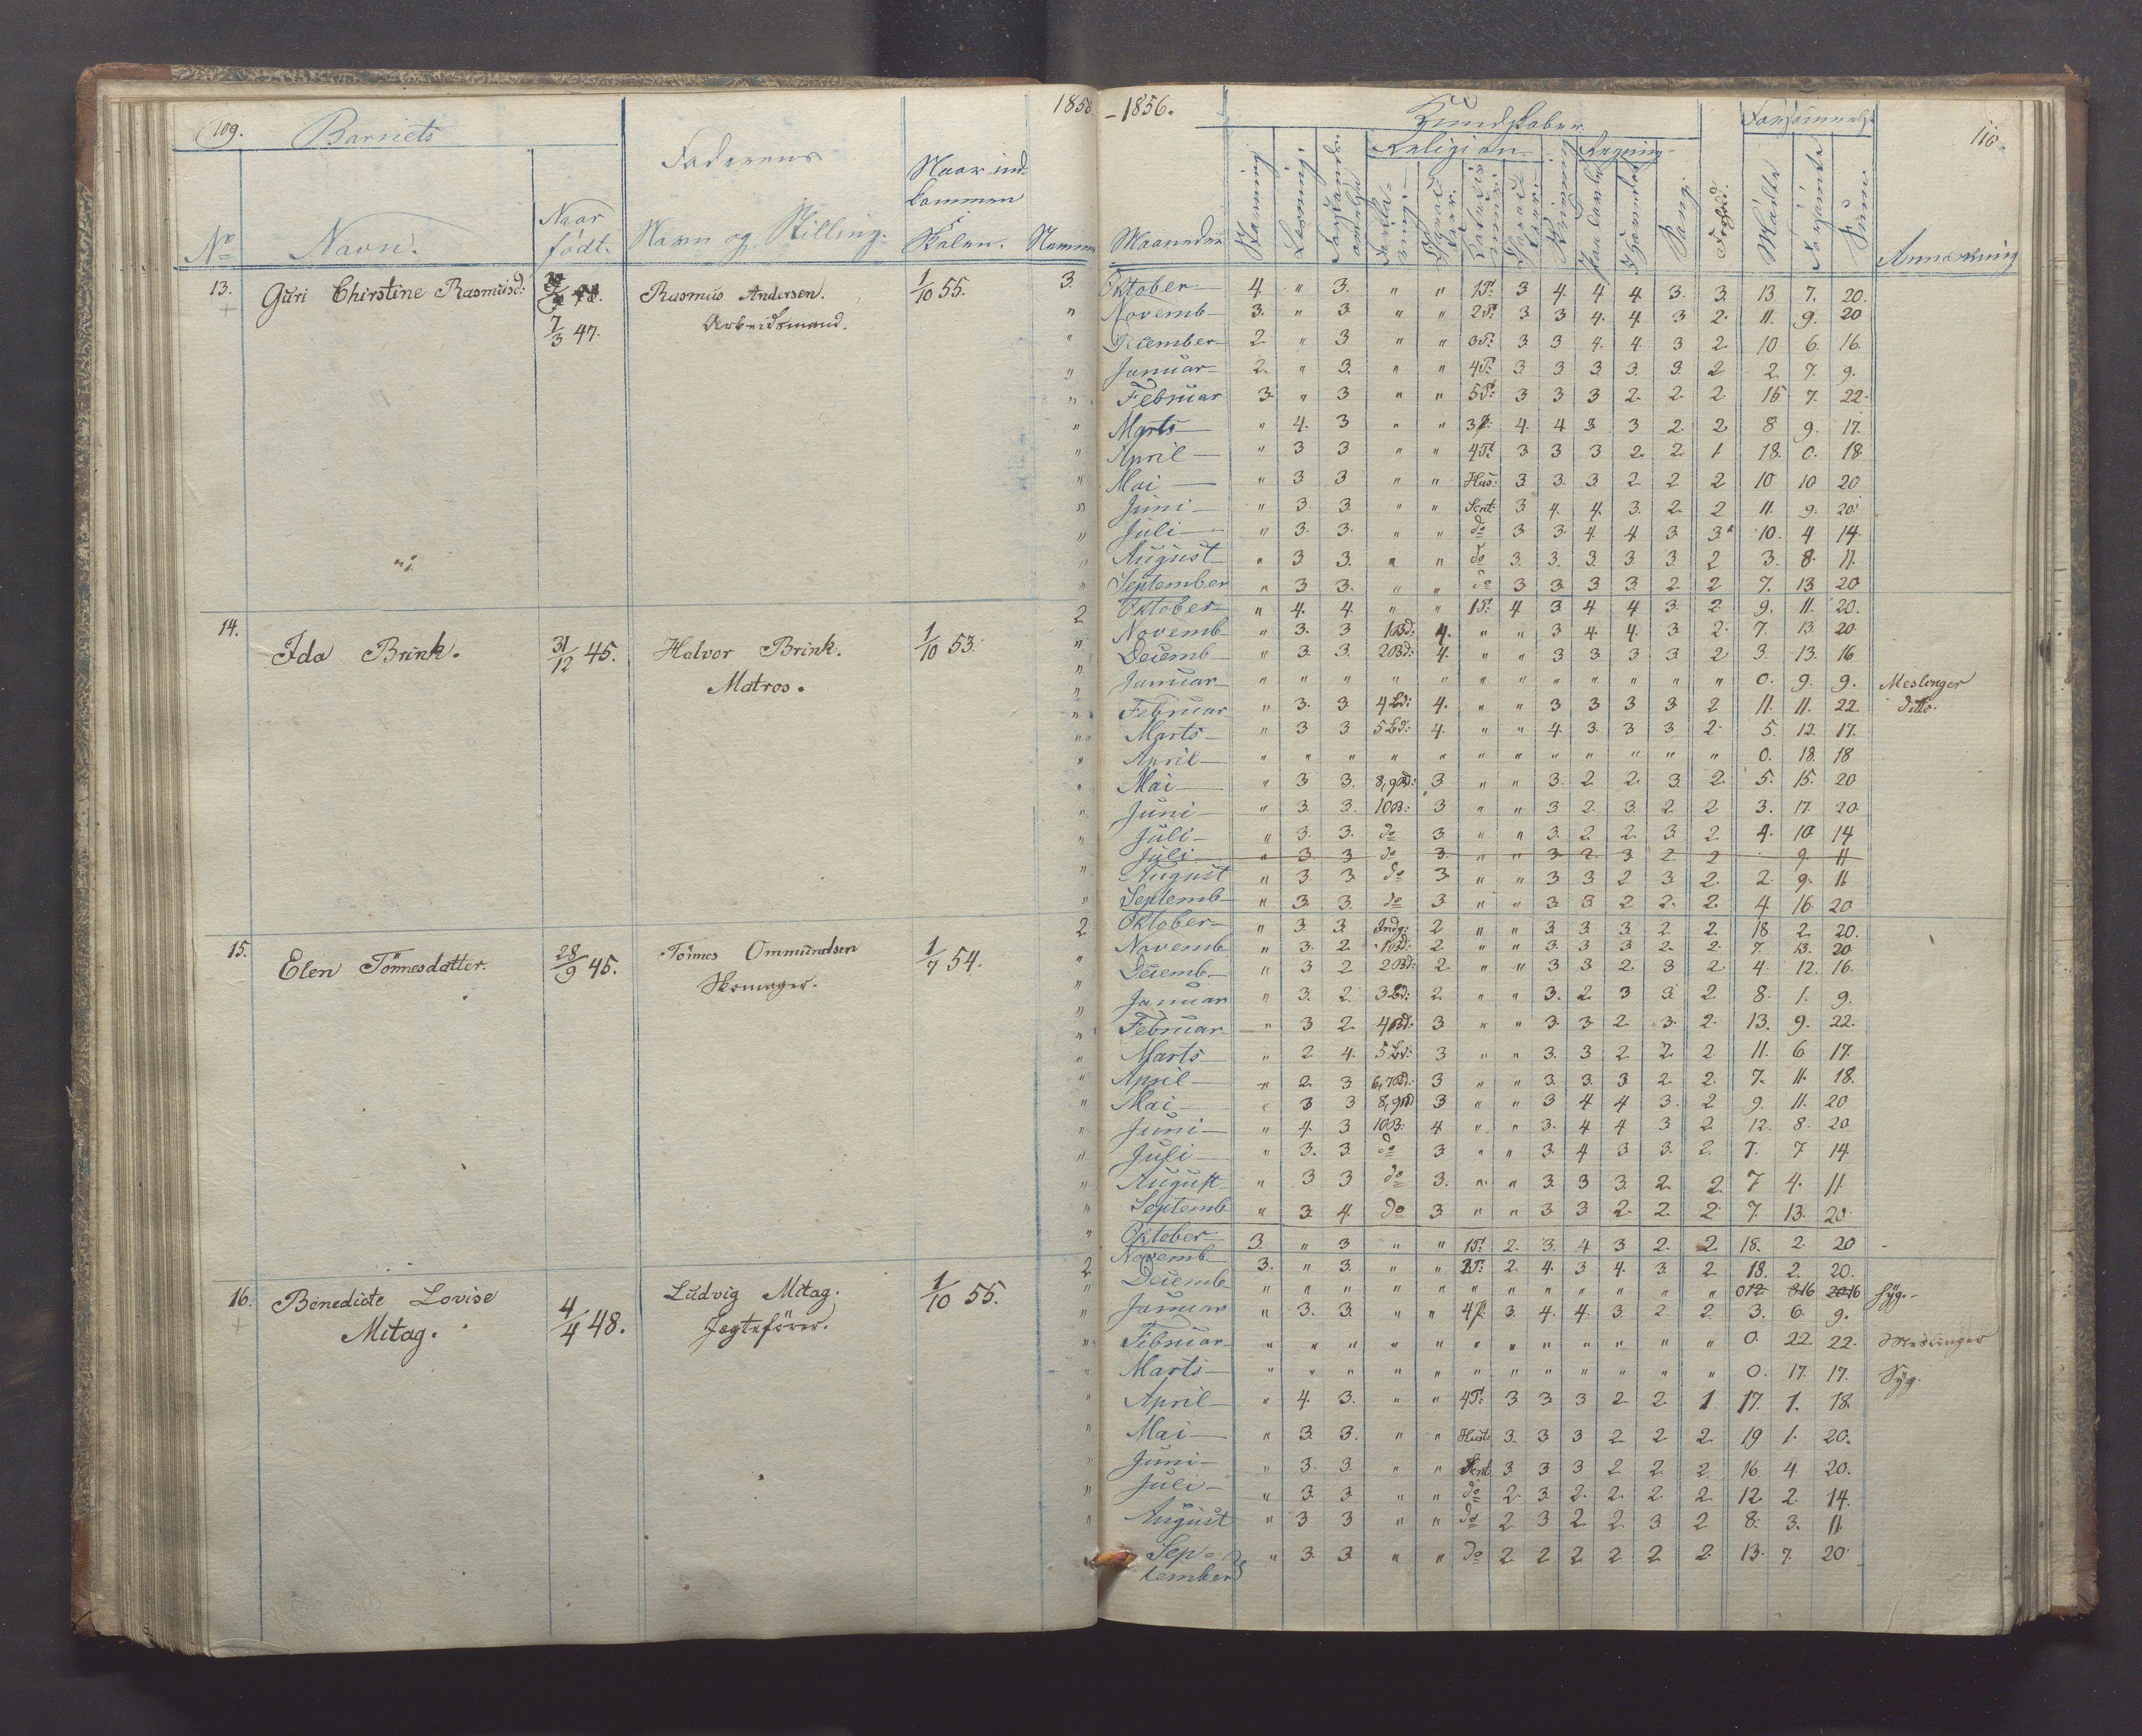 109.
Barnets
Faderens
Naar ind-
kommen
1855
No
Navn.
Naar
født.
Navn og Stilling.
Skolen.
13.
Guri Chirstine Rasmusd:
7/3 47.
Rasmus Andersen.
Arbeidsmand.
1/10 55.
3.
14.
Ida Brink.
31/12 45.
Halvor Brink.
Matros.
1/10 53.
2
15.
Elen Tönnesdatter.
28/9 45.
Tönnes Ommundsen
Skomager.
1/7 54.
2
16.
Benedicte Lovise
Mitag.
4/4 48.
Ludvig Mitag.
Jegtefører.
1/10 55.
2
-1856.
Kundskaber.
110.
Religion
Regning
Maaneder
Sang.
Mødte
Forsømte
Sum
Anmærkning
Oktober 4 " 3. " " 1P: 3 4. 4 4. 3. 3. 13. 7. 20.
Novemb 3. " 3 " " 2P: 3 3 4. 4 3 2. 11. 9. 20
December 2 " 3 " " 3P: 3. 3 4. 4. 3 2 10 6. 16.
Januar 2. " 3. " " 4P: 3 3 3 3. 3. 2 2. 7. 9.
Februar 3. " 3 " " 5P: 3 3 3 2. 2. 2 15 7. 22.
Marts " 4. 3 " " 3P: 4. 4 3. 3 2. 2 8 9. 17.
April " 3 3 " " 4P: 3 3 3 2. 2. 1 18. 0. 18
Mai " 3 3 " " Hus: 3 3. 3. 2 2 2 10 10 20
Juni " 3. 3. " " Sent: 3 4. 4. 3. 2. 2 11. 9. 20.
Juli " 3. 3. " " do 3. 3. 4. 4 3. 3 10. 4 14.
August " 3 3. " " do 3. 3. 3. 3. 3. 2 3. 8. 11.
September " 3 3. " " do 3 3 3 3. 2 2 7. 13 20
Oktober " 4. 4. " " 1P: 4 3 4 4 3. 2 9. 11. 20.
Novemb " 3. 3 1Bd: 4. " " 3 4. 4. 3 2. 7. 13 20
Decemb " 3. 3. 2Bd: 4. " " 3 3 3 3. 2 3. 13. 16
Januar " " " " " " " " " " " " 0. 9. 9. Meslinger
Februar " 3. 3 4Bd: 4. " " 3 3 3 3. 2 11. 11. 22. ditto.
Marts " 3 3 5Bd: 4. " " 4. 3. 3 3 2. 5. 12. 17.
April " " " " " " " " " " " " 0. 18. 18
Mai " 3 3. 8,9Bd: 3 " " 3. 2 2. 3 2. 5. 15. 20
Juni " 3. 3. 10B: 3 " " 3 2. 3. 2. 2 3. 17. 20
Juli " 3. 3. do 3. " " 3. 2 2. 3. 2 4. 10 14
Juli " 3. 3 do 3. " " 3. 2. 3 2. 2 9. 11
August " 3. 3. do 3. " " 3 3 2 3. 2. 2. 9. 11
Septemb " 3. 3. do 3 " " 3 3 2 2. 2. 4 16. 20
Oktober " 3 3. Indg: 2 " " 3 3. 3. 2 2. 18 2. 20.
Novemb " 3. 2. 1Bd: 2 " " 3. 3. 3 2. 2. 7. 13. 20
Decemb " 3 2 2Bd: 2. " " 3 3 2. 3 2 4. 12. 16.
Januar " 3. 2. 3Bd: 2. " " 3. 2 3 3. 2 8. 1. 9.
Februar " 3 2. 4Bd: 3 " " 3. 3. 2 3. 2. 13. 9. 22.
Marts " 2 4. 5Bd: 3 " " 3. 3 2. 2. 2 11. 6 17.
April " 2. 3 6,7Bd: 3 " " 3. 3. 3. 2 2. 7. 11. 18.
Mai " 3 3 8,9Bd 3 " " 3 4 4 3. 2 9. 11. 20
Juni " 4. 3 10B: 4 " " 3. 4 4 3 2 12. 8. 20
Juli " 3. 3. do 3 " " 3. 4 3 3. 2. 7. 7 14.
August " 3 3 do 3. " " 3. 3 3. 2. 2. 7 4. 11
Septemb " 3. 4. do 3 " " 3 3 2. 2. 2. 7. 13. 20.
Oktober 3. " 3 " " 1P: 2. 3. 4 3 2. 2. 18. 2. 20
Novemb 3. " 3. " " 2P: 2. 4. 3 4. 3. 2 18. 2. 20.
Decemb " " " " " " " " " " " " 012 816 2016 syg.
Januar " 3. 3. " " 4P. 3. 4. 4. 3. 2 2. 3. 6. 9.
Februar " " " " " " " " " " " " 0. 22. 22. Meslinger
Marts " " " " " " " " " " " " 0. 17. 17. Syg.
April " 4. 3. " " 4P: 3 3. 3 2. 2. 1. 17. 1. 18.
Mai " 3. 3. " " Hust: 3. 3 3 2 2 2. 19 1. 20.
Juni " 3. 3. " " Sent: 3 3 3 2 2. 2. 16. 4. 20.
Juli " 3. 3 " " do 2 3. 2. 2. 2. 2 12 2. 14.
August " 3 3 " " do 2. 3 2. 2. 3 2 8. 3. 11.
Sep-
tember " 3. 3. " " do 2 2 2 2 2 2. 13. 7. 20.